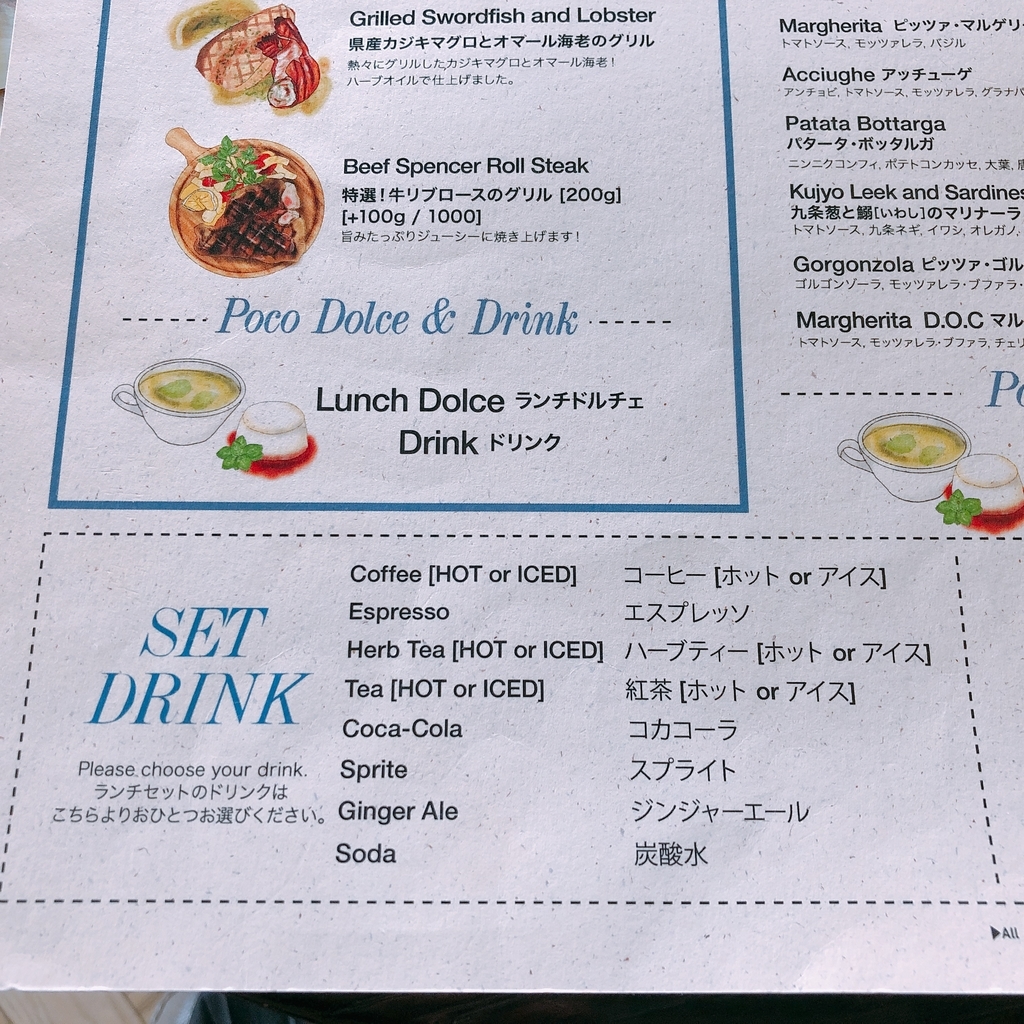 Grilled Swordfish and Lobster
県産カジキマグロとオマール海老のグリル
熱々にグリルしたカジキマグロとオマール海老！
ハーブオイルで仕上げました。
Beef Spencer Roll Steak
特選！牛リブロースのグリル [200g]
[+100g / 1000]
旨みたっぷりジューシーに焼き上げます！
Poco Dolce & Drink
Lunch Dolce ランチドルチェ
Drink ドリンク
Margherita ピッツァ・マルゲリ
トマトソース, モッツァレラ, バジル
Acciughe アッチューゲ
アンチョビ, トマトソース, モッツァレラ, グラナパ
Patata Bottarga
パタータ・ボッタルガ
ニンニクコンフィ, ポテトコンカッセ, 大葉,
Kujyo Leek and Sardines
九条葱と鰯[いわし]のマリナーラ
トマトソース, 九条ネギ, イワシ, オレガノ,
Gorgonzola ピッツァ・ゴル
ゴルゴンゾーラ, モッツァレラ・ブファラ・
Margherita D.O.C マル
トマトソース, モッツァレラ・ブファラ, チェリ
Po
SET
DRINK
Please choose your drink.
ランチセットのドリンクは
こちらよりおひとつお選びください。
Coffee [HOT or ICED] コーヒー [ホット or アイス]
Espresso エスプレッソ
Herb Tea [HOT or ICED] ハーブティー [ホット or アイス]
Tea [HOT or ICED] 紅茶 [ホット or アイス]
Coca-Cola コカコーラ
Sprite スプライト
Ginger Ale ジンジャーエール
Soda 炭酸水
▶All